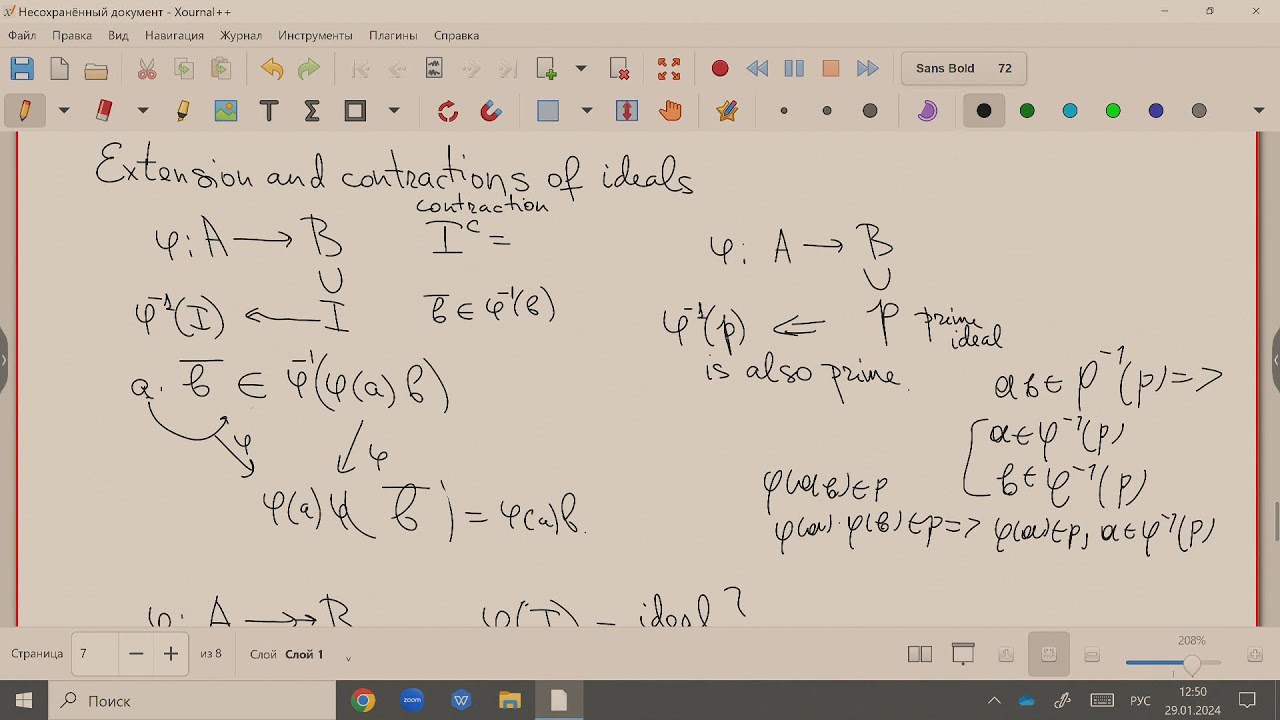 Несохранённый документ - Xournal++
Файл Правка Вид Навигация Журнал Инструменты Плагины Справка
Sans Bold 72
Extension and contractions of ideals
contraction
φ: A → B
I^c =
∪
φ⁻¹(I) ← I
b̅ ∈ φ⁻¹(b)
a · b̅ ∈ φ⁻¹(φ(a) b)
φ
φ
φ(a) φ(b̅) = φ(a)b.
φ: A → B
∪
φ⁻¹(p) ⇐ p prime ideal
is also prime.
ab ∈ p⁻¹(p) =>
[ a ∈ φ⁻¹(p)
b ∈ φ⁻¹(p)
φ(ab) ∈ p
φ(a) · φ(b) ∈ p => φ(a) ∈ p, a ∈ φ⁻¹(p)
φ: A ↠ B φ(I) – ideal?
Страница 7 из 8 Слой Слой 1
208%
Поиск
zoom
W
РУС
12:50
29.01.2024